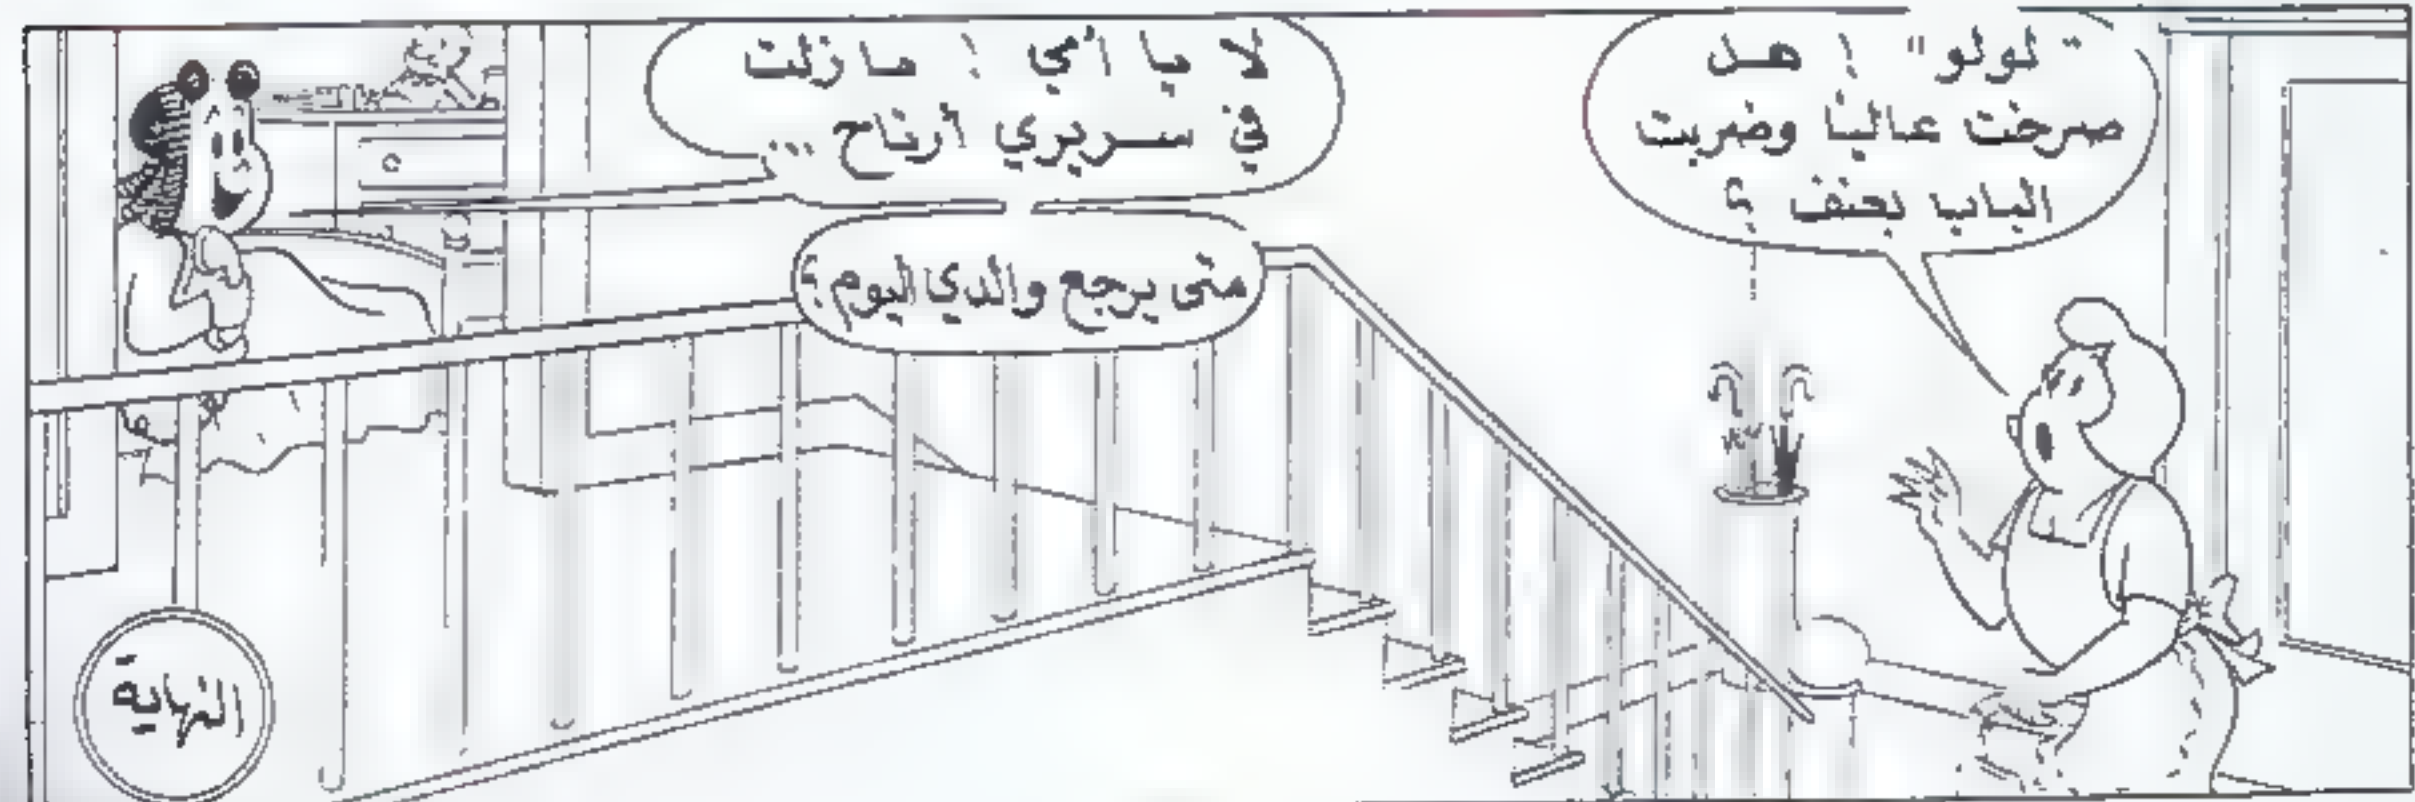 "لولو" ! هل
صرخت عاليا وضربت
الباب بعنف ؟
لا يا أمي ! ما زلت
في سريري أرتاح ...
متى يرجع والدي اليوم ؟
النهاية